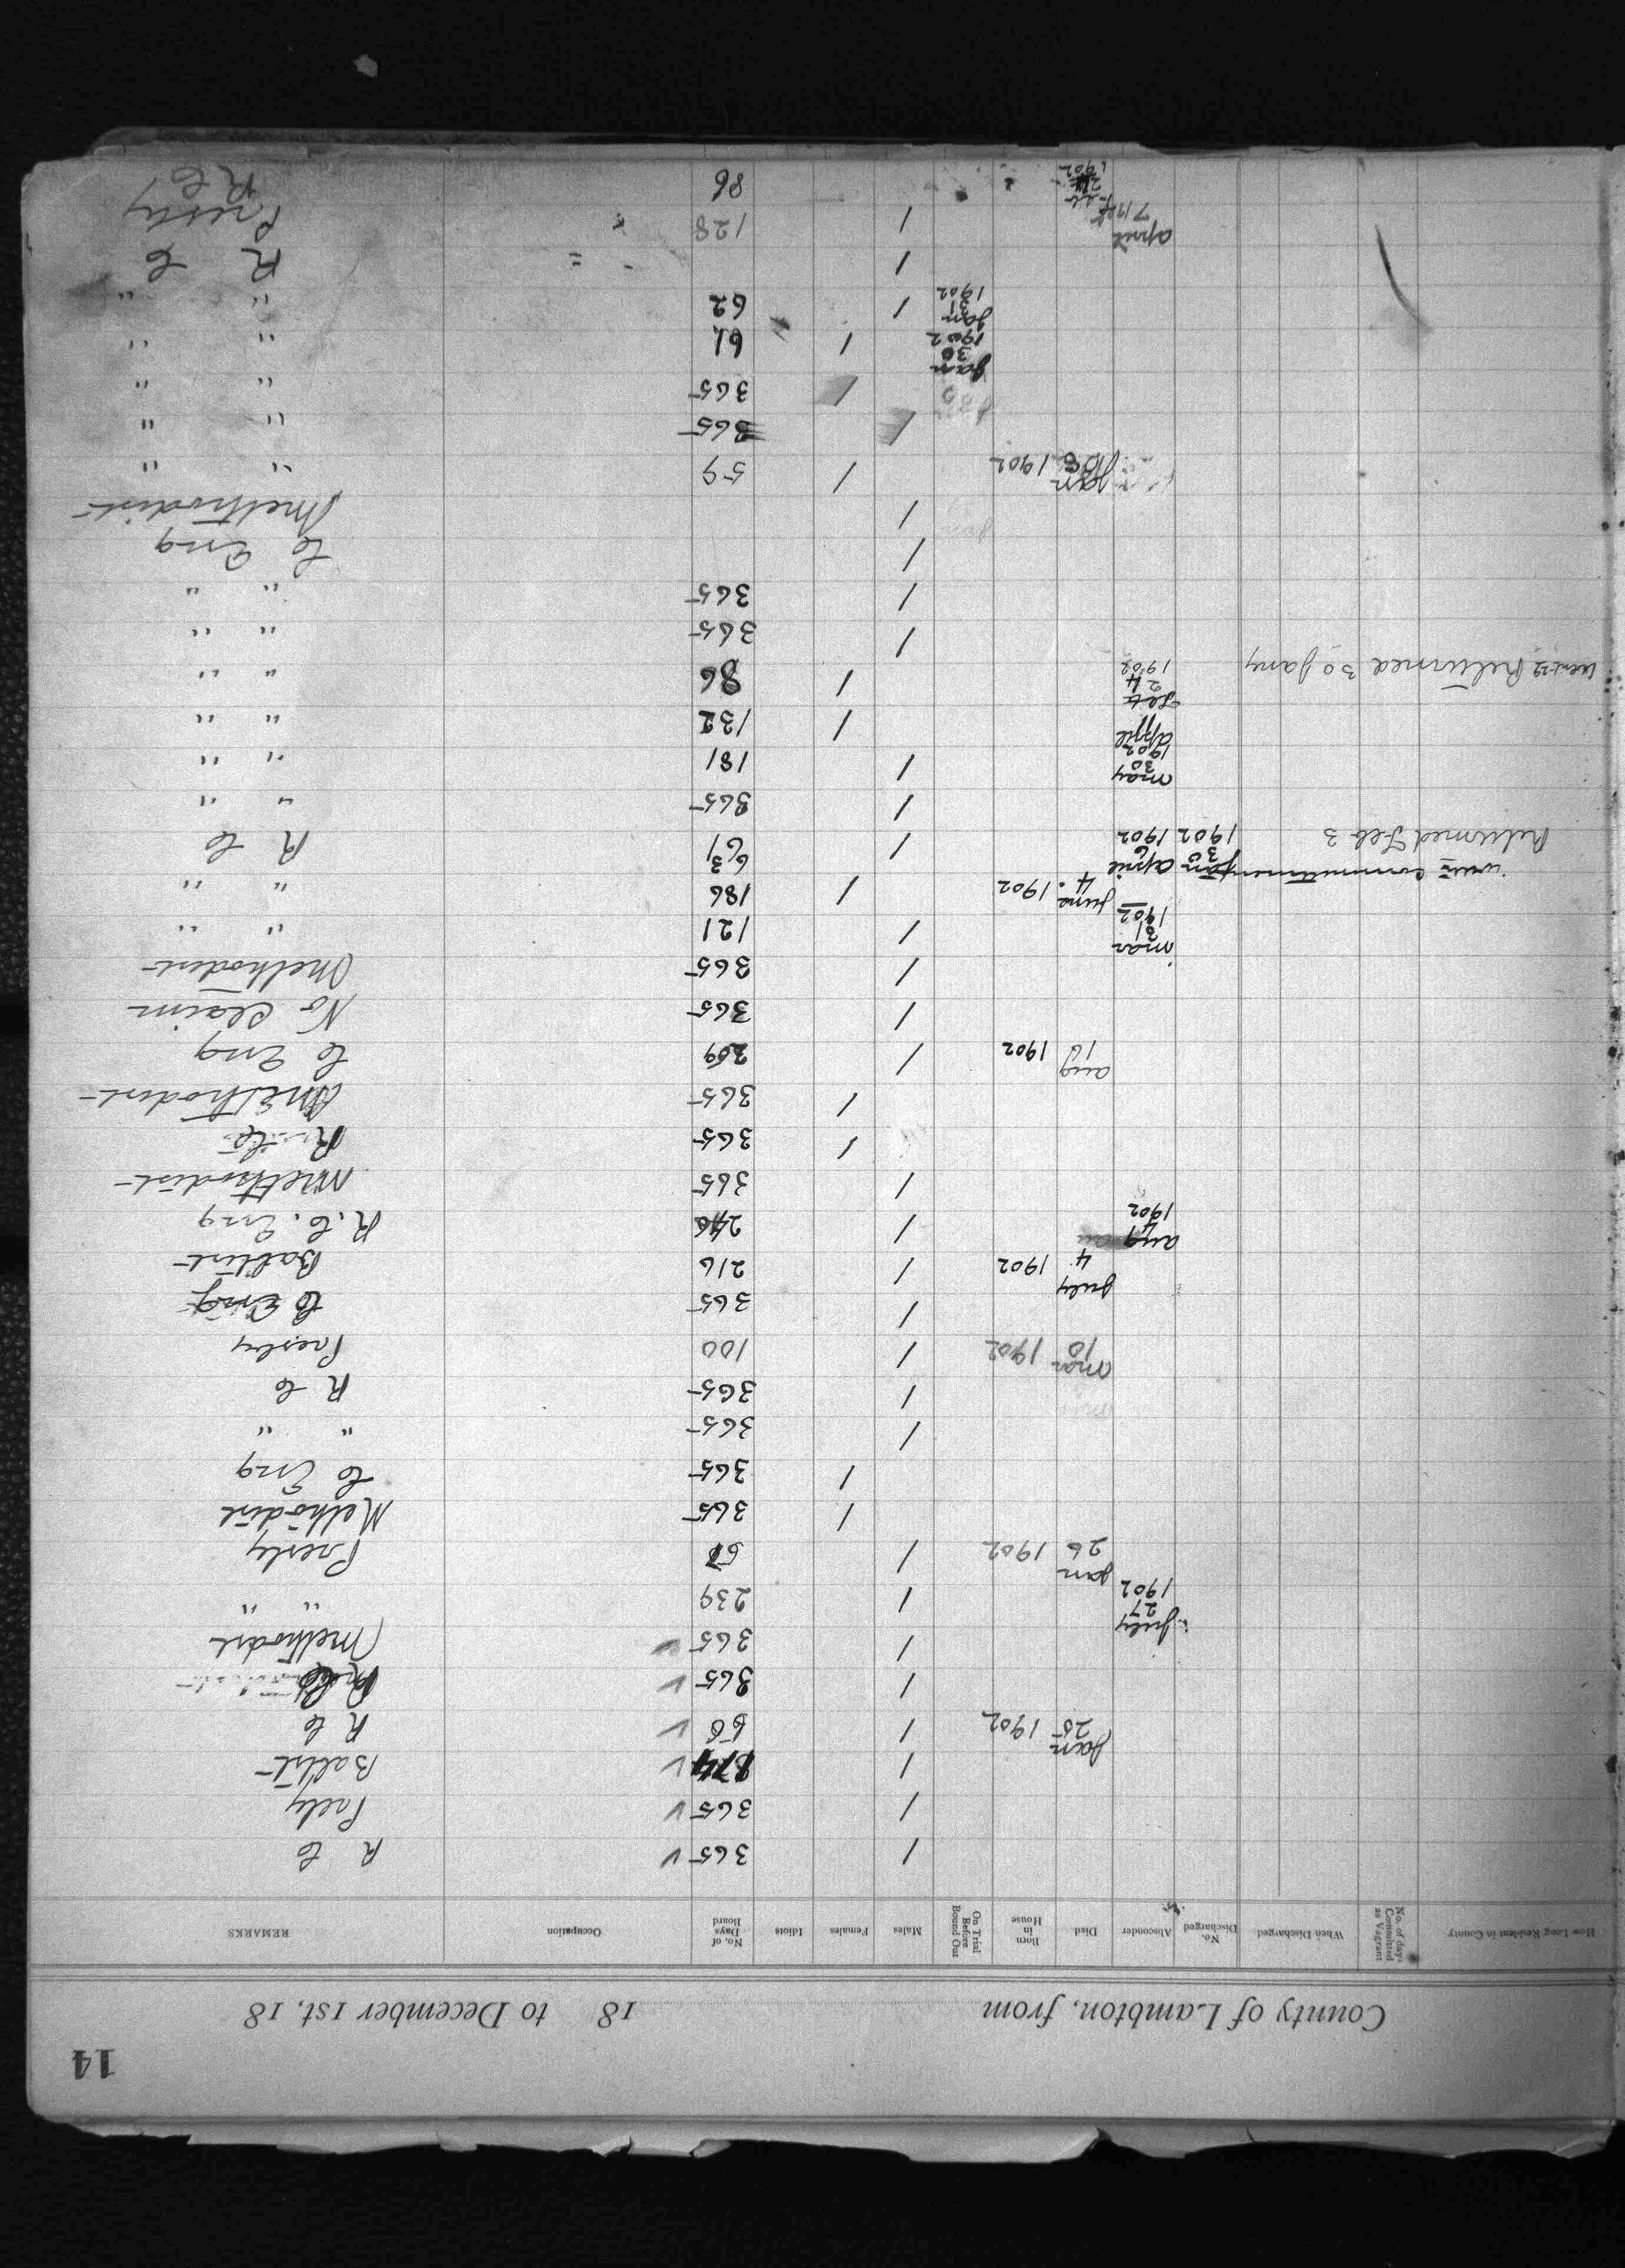 14
County of Lambton, from 18 to December 1st, 18
How Long Resident in County No. of days Committed as Vagrant When Discharged No. Discharged Absconder Died Born in House On Trial Before Bound Out Males Females Idiots No. of Days Board Occupation REMARKS
1 365 R C
1 365
Jan 25 1902 1 R C
1 365
1 365 Methodist
July 27 1902 1 239 " "
Jan 26 1902 1 Presby
1 365 Methodist
1 365 C Eng
1 365 " "
1 365 R C
Mar 10 1902 1 100 Presby
1 365 C Eng
July 4 1902 1 216 Babtist
Aug 4 1902 1 R. C. Eng
1 365 Methodist
1 365
1 365 Methodist
Aug 16 1902 1 C Eng
1 365 No Claim
1 365 Methodist
Mar 31 1902 1 121 " "
June 4. 1902 1 186 " "
Returned Feb 3 Jan 30 1902 April 6 1902 1 R C
1 365 " "
May 30 1902 1 181 " "
April 1 " "
Returned 30 Jany Feb 24 1902 1 86 " "
1 365 " "
1 365 " "
1 C Eng
1 Methodist
Jan 1902 1 59 " "
1 365 " "
1 365 " "
Jan 30 1902 1 61 " "
Jan 31 1902 1 62 " "
1 R C
April 7 1 128 Presby
Feb 24 1902 86 R C